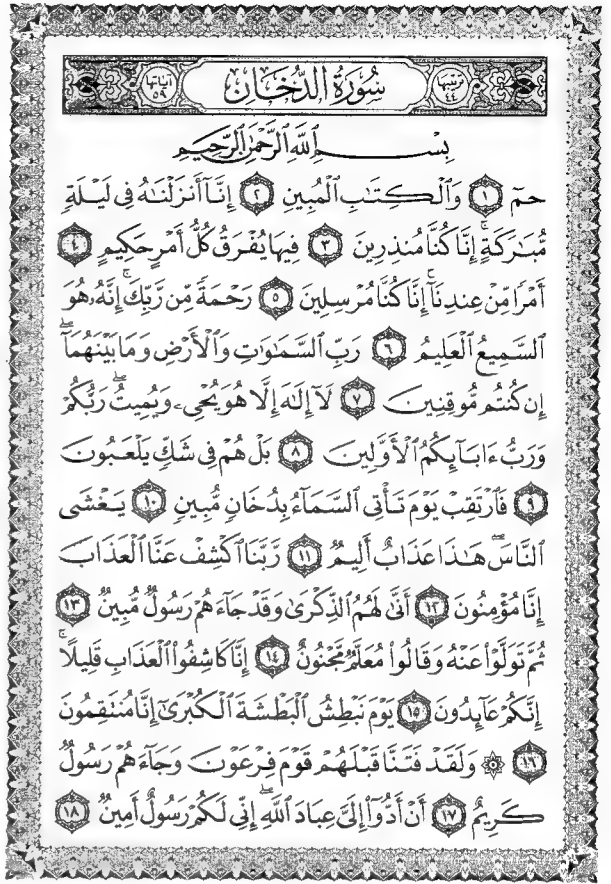 آياتها ٥٩ سُورَةُ الدُّخَانِ ترتيبها ٤٤
بِسْمِ اللَّهِ الرَّحْمَٰنِ الرَّحِيمِ
حمٓ ١ وَٱلْكِتَٰبِ ٱلْمُبِينِ ٢ إِنَّآ أَنزَلْنَٰهُ فِى لَيْلَةٍ
مُّبَٰرَكَةٍ ۚ إِنَّا كُنَّا مُنذِرِينَ ٣ فِيهَا يُفْرَقُ كُلُّ أَمْرٍ حَكِيمٍ ٤
أَمْرًا مِّنْ عِندِنَآ ۚ إِنَّا كُنَّا مُرْسِلِينَ ٥ رَحْمَةً مِّن رَّبِّكَ ۚ إِنَّهُۥ هُوَ
ٱلسَّمِيعُ ٱلْعَلِيمُ ٦ رَبِّ ٱلسَّمَٰوَٰتِ وَٱلْأَرْضِ وَمَا بَيْنَهُمَآ ۖ
إِن كُنتُم مُّوقِنِينَ ٧ لَآ إِلَٰهَ إِلَّا هُوَ يُحْىِۦ وَيُمِيتُ ۖ رَبُّكُمْ
وَرَبُّ ءَابَآئِكُمُ ٱلْأَوَّلِينَ ٨ بَلْ هُمْ فِى شَكٍّ يَلْعَبُونَ
٩ فَٱرْتَقِبْ يَوْمَ تَأْتِى ٱلسَّمَآءُ بِدُخَانٍ مُّبِينٍ ١٠ يَغْشَى
ٱلنَّاسَ ۖ هَٰذَا عَذَابٌ أَلِيمٌ ١١ رَّبَّنَا ٱكْشِفْ عَنَّا ٱلْعَذَابَ
إِنَّا مُؤْمِنُونَ ١٢ أَنَّىٰ لَهُمُ ٱلذِّكْرَىٰ وَقَدْ جَآءَهُمْ رَسُولٌ مُّبِينٌ ١٣
ثُمَّ تَوَلَّوْا۟ عَنْهُ وَقَالُوا۟ مُعَلَّمٌ مَّجْنُونٌ ١٤ إِنَّا كَاشِفُوا۟ ٱلْعَذَابِ قَلِيلًا ۚ
إِنَّكُمْ عَآئِدُونَ ١٥ يَوْمَ نَبْطِشُ ٱلْبَطْشَةَ ٱلْكُبْرَىٰٓ إِنَّا مُنتَقِمُونَ
١٦ ۞ وَلَقَدْ فَتَنَّا قَبْلَهُمْ قَوْمَ فِرْعَوْنَ وَجَآءَهُمْ رَسُولٌ
كَرِيمٌ ١٧ أَنْ أَدُّوٓا۟ إِلَىَّ عِبَادَ ٱللَّهِ ۖ إِنِّى لَكُمْ رَسُولٌ أَمِينٌ ١٨